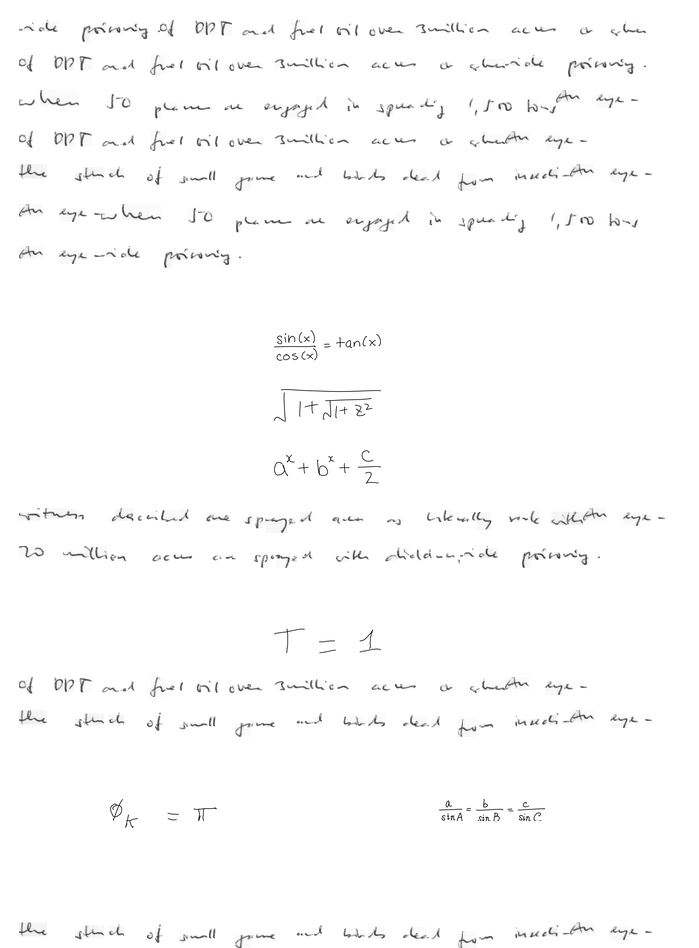 -cide poisoning of DDT and fuel oil over 3 million acres
of DDT and fuel oil over 3 million acres -cide poisoning.
when 50 planes are engaged in spreading 1,500 tons An eye-
of DDT and fuel oil over 3 million acres An eye-
the stench of small game and birds dead from insecti- An eye-
An eye- when 50 planes are engaged in spreading 1,500 tons
An eye-cide poisoning.
sin(x)/cos(x) = tan(x)
√(1+√(1+z²))
a^x + b^x + c/2
witness described one sprayed area as literally with An eye-
20 million acres are sprayed with -cide poisoning.
T = 1
of DDT and fuel oil over 3 million acres An eye-
the stench of small game and birds dead from insecti- An eye-
ϕ_K = π
a/sin A = b/sin B = c/sin C
the stench of small game and birds dead from insecti- An eye-